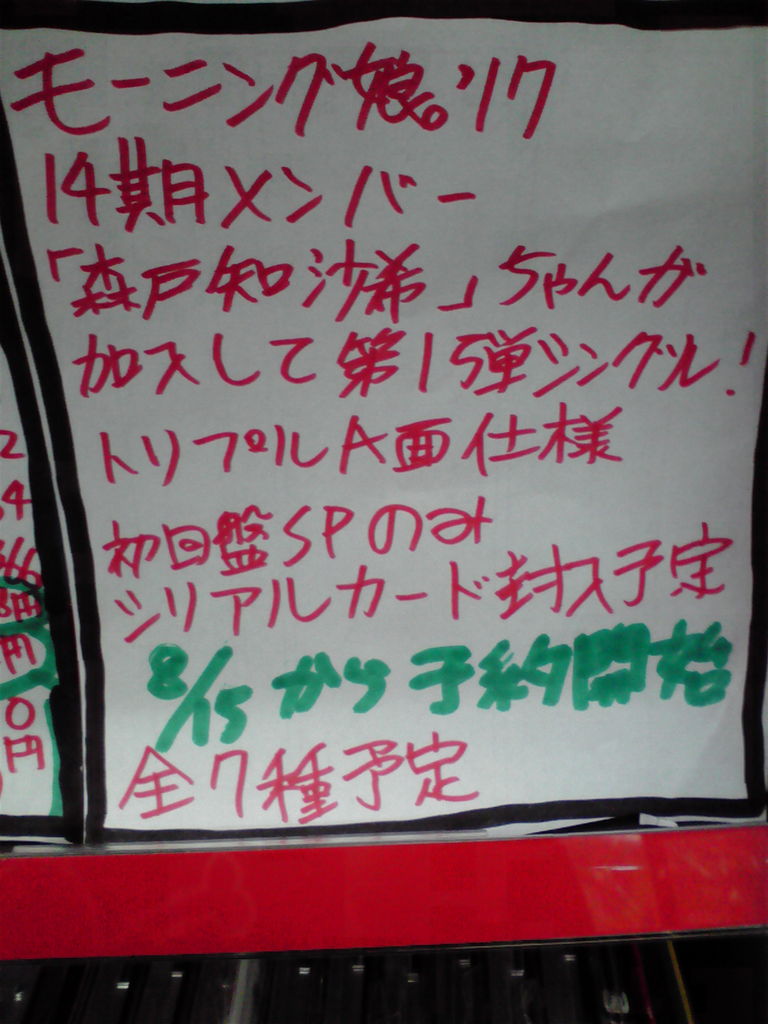 モーニング娘。'17
14期メンバー
「森戸知沙希」ちゃんが
加入して第1弾シングル!
トリプルA面仕様
初回盤SPのみ
シリアルカード封入予定
8/15から予約開始
全7種予定
2
4
円
円
0
円